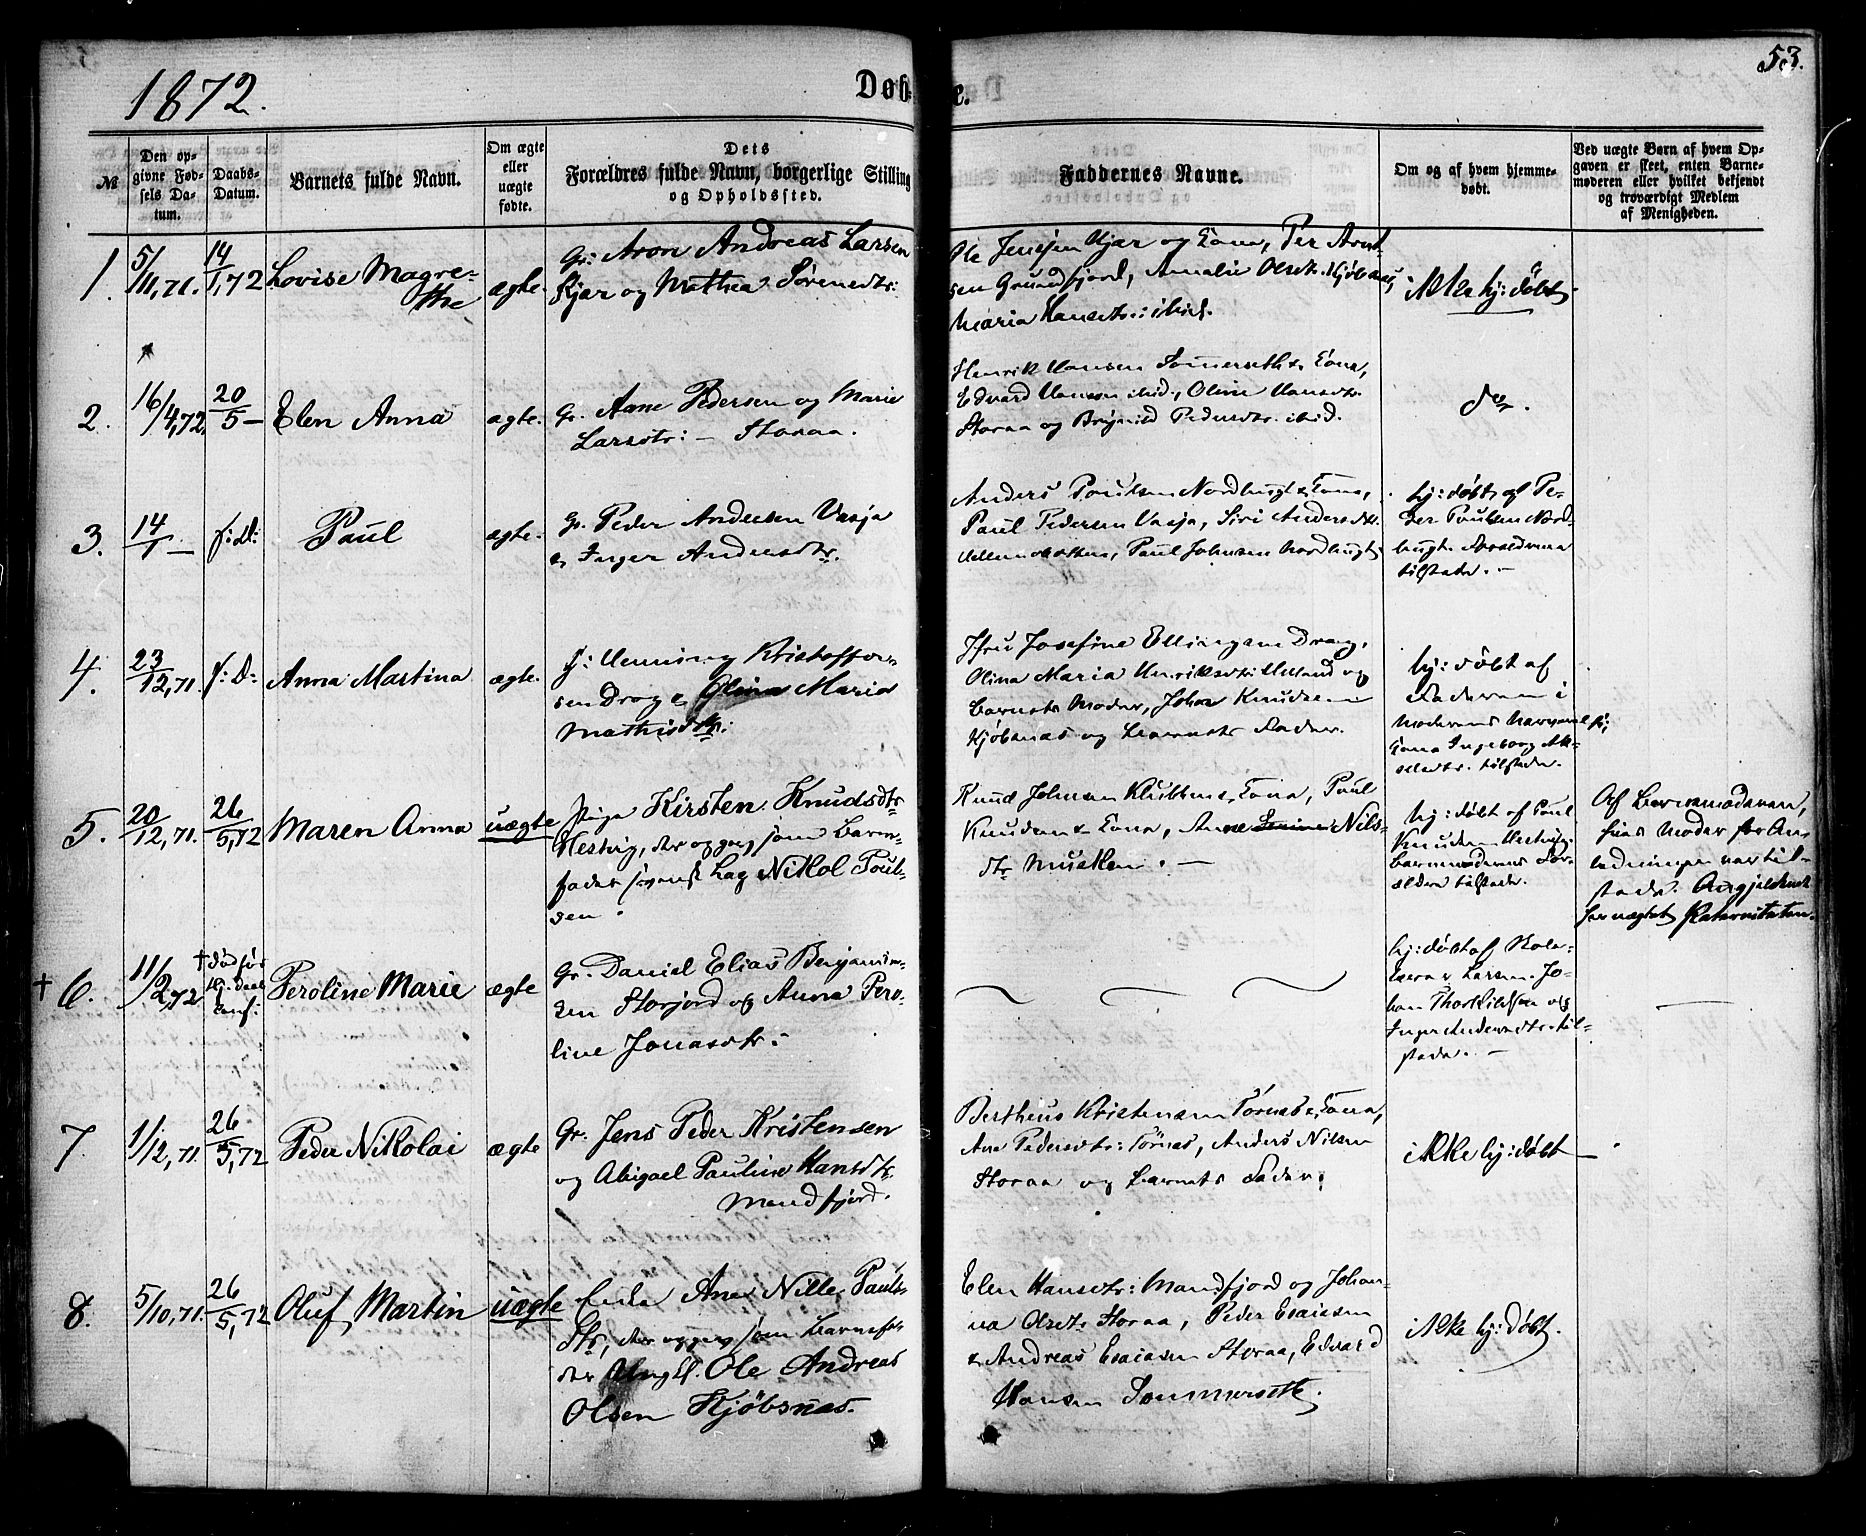 53.
1872.
Døbte.
№
Den opgivne Fødsels Datum.
Daabs-Datum.
Barnets fulde Navn.
Om ægte eller uægte fødte.
Dets Forældres fulde Navn, borgerlige Stilling og Opholdssted.
Faddernes Navne.
Om og af hvem hjemmedøbt.
Ved uægte Barn af hvem Opgaven er skeet, enten Barnemoderen eller hvilket bekjendt og troværdigt Medlem af Menigheden.
1.
5/11,71.
14/1,72
Lovise Magrethe
ægte.
Gr: Aron Andreas Larsen
Kjær og Mathea Sørensdtr:
Ole Jensen Kjær og Kona, Per Arntsen
Grundfjord, Amalie Olsdtr. Kjøbsnæs,
Maria Hansdtr: ibid.
ikke hj: døbt
2.
16/4,72.
20/5 —
Elen Anna
ægte.
Gr. Arne Pedersen og Marie
Larsdtr: — Storaa.
Henrik Hansen Sommerseth & Kona,
Edvard Hansen ibid., Oline Hansdtr.
Storaa og Brynild Pedersdtr. ibid.
do.
3.
14/1 —
s: D:
Paul
ægte.
Gr. Peder Andersen Vasja
& Inger Andersdtr.
Anders Poulsen Nordbugt & Kona,
Paul Pedersen Vasja, Siri Andersdtr.
Paul Johnsen Nordbugt
hj: døbt af Peder
Poulsen Nordbugt.
Forældrene
tilstede. —
4.
23/12,71.
s: D:
Anna Martina
ægte.
J: Henning Kristoffersen
Drag & Olina Maria
Mathisdtr:
Jfru Josefine Ellingsen Drag,
Olina Maria Henriksdtr: og
Barnets Moder, Johan Knudsen
Kjøbsnæs og Barnets Fader.
hj: døbt af
Faderen i
Moderens Nærværelse
Kona Ingeborg Akseldtr.
tilstede.
5.
20/12,71.
26/5,72
Maren Anna
uægte
Pige Kirsten Knudsdtr
Hestvig, der opgav som Barnefader
svensk Lap Nikol Poulsen.
Knud Johnsen Klubben & Kona, Paul
Knudsen & Kona, Anne Nilsdtr
Musken. —
hj: døbt af Paul
Knudsen Hestvig.
Barnemoderens Forældre
tilstede.
Af Barnemoderen,
hvis Moder for Anledningen
var tilstede.
Angjeldende
fornægtet Paterniteten.
† 6.
11/2,72
† død før
Peroline Marie
ægte
Gr. Daniel Elias Benjaminsen
Storjord og Anna Peroline
Jonasdtr:
hj: døbt af
Larsen. Johan
Thorkildsen og
Inger Andersdtr. tilstede. —
7.
1/12,71.
26/5,72
Peder Nikolai
ægte
Gr. Jens Peder Kristensen
og Abigael Pauline Hansdtr
Mandfjord.
Bertheus Kristensen Tørnæs & Kona,
Ane Pedersdtr: Tørnæs, Anders Nilsen
Storaa og Barnets Fader.
ikke hj: døbt
8.
5/10,71.
26/5,72
Oluf Martin
uægte
Enke Ane Nille Paulsdtr,
der opgav som Barnefader
Ungk. Ole Andreas
Olsen Kjöbsnæs.
Elen Hansdtr: Mandfjord og Johanna
Olsdtr Storaa, Peder Esaiasen
& Andreas Esaiasen Storaa, Edvard
Hansen Sommerseth.
ikke hj: døbt.